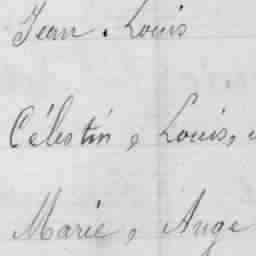 Jean. Louis
Célestin, Louis,
Marie, Ange